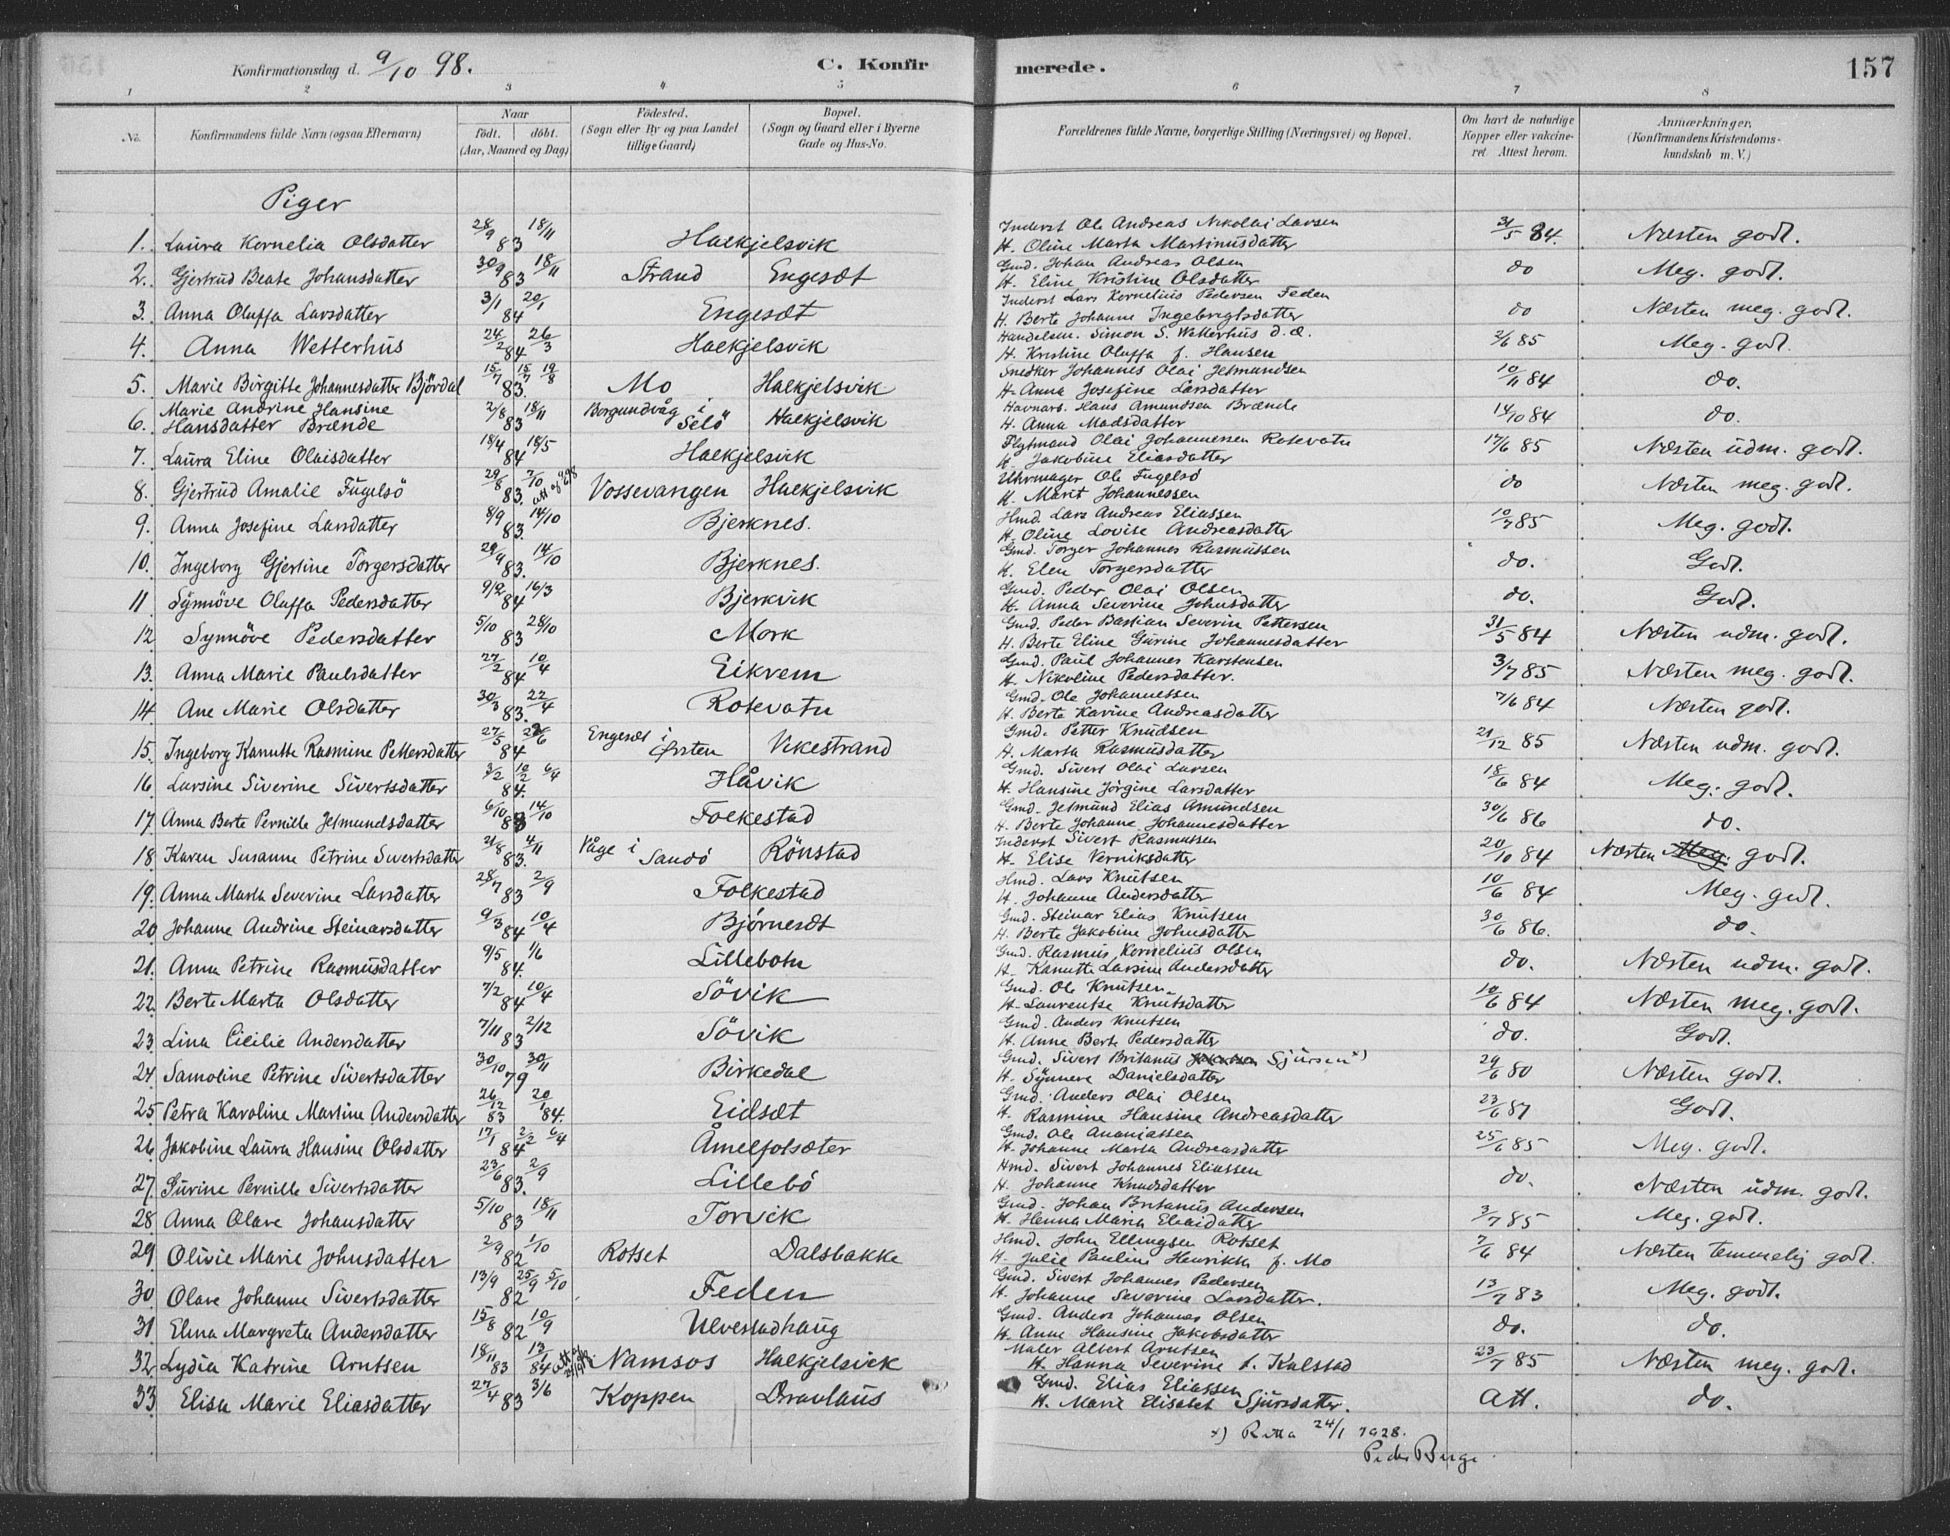 Konfirmationsdag d. 9/10 98.
C. Konfirmerede.
157
1 2 3 4 5 6 7 8
No. Konfirmandens fulde Navn (ogsaa Efternavn) Naar født. døbt. (Aar, Maaned og Dag) Fødested. (Sogn eller By og paa Landet tillige Gaard) Bopæl. (Sogn og Gaard eller i Byerne Gade og Hus-No. Forældrenes fulde Navne, borgerlige Stilling (Næringsvei) og Bopæl. Om havt de naturlige Kopper eller vakcineret Attest herom. Anmærkninger, (Konfirmandens Kristendomskundskab m. V.)
Piger
1. Laura Kornelia Olsdatter 28/9 83 18/11 Hækjelsvik Inderst Ole Andreas Nikolai Larsen H. Oline Marta Martinusdatter 31/5 84. Næsten godt.
2. Gjertrud Beate Johansdatter 30/9 83 18/11 Strand Engesæt Gmd. Johan Andreas Olsen H. Eline Kristine Olsdatter do Meg. godt.
3. Anna Oluffa Larsdatter 3/1 84 20/1 Engesæt Inderst Lars Kornelius Pedersen Feden H. Berte Johanne Ingebrigtsdatter do Næsten meg. godt.
4. Anna Wetterhus 24/2 84 26/3 Hækjelsvik Handelsm. Simon S. Wetterhus d. æ. H. Kristine Oluffa f. Hansen 2/6 85 Meg. godt.
5. Marie Birgitte Johannesdatter Bjørdal 15/7 83. 15/7 19/8 Mo Hækjelsvik Snedker Johannes Olai Jetmundsen H. Anna Josefine Larsdatter 10/11 84 do.
6. Marie Andrine Hansine Hansdatter Brænde 2/8 83 18/11 Borgundvåg i Selö Hækjelsvik Havnarb. Hans Amundsen Brænde H. Anna Madsdatter 14/10 84 do.
7. Laura Eline Olaisdatter 18/4 84 18/5 Hækjelsvik Flytmand Olai Johannessen Rotevatn H. Jakobine Eliasdatter 17/6 85 Næsten udm. godt.
8. Gjertrud Amalie Fugelsö 29/8 83. 7/10 Vossevangen Hækjelsvik Uhrmager Ole Fugelsö H. Marit Johannessen do Næsten meg. godt.
9. Anna Josefine Larsdatter 8/9 83. 14/10 Bjerknes. Hmd. Lars Andreas Eliassen H. Oline Lovise Andreasdatter 10/7 85 Meg. godt.
10. Ingeborg Gjertine Torgersdatter 29/9 83. 14/10 Bjerknes. Gmd. Torger Johannes Rasmussen H. Elen Torgersdatter do. Godt.
11 Synnöve Oluffa Pedersdatter 9/2 84 16/3 Bjerkvik Gmd. Peder Olai Olsen H. Anna Severine Johnsdatter do. Godt.
12 Synnöve Pedersdatter 5/10 83 28/10 Mork Gmd. Peder Bastian Severin Pettersen H. Berte Eline Gurine Johannesdatter 31/5 84 Næsten udm. godt.
13. Anna Marie Paulsdatter 27/2 84 10/4 Eikrem Gmd. Paul Johannes Karstensen H. Nikoline Pedersdatter. 3/7 85 Næsten meg. godt.
14. Ane Marie Olsdatter 30/3 83. 22/4 Rotevatn Gmd. Ole Johannessen H. Berte Karine Andreasdatter 7/6 84 Næsten godt.
15. Ingeborg Kanutte Rasmine Pettersdatter 27/5 84 Engeset i Ørsten Vikestrand Gmd. Petter Knudsen H. Marta Rasmusdatter 21/12 85 Næsten udm. godt.
16. Larsine Siverine Sivertsdatter 3/2 84. 10/2 6/4 Håvik Gmd. Sivert Olai Larsen H. Hansine Jörgine Larsdatter 18/6 84 Meg. godt.
17. Anna Berte Pernille Jetmundsdatter 6/10 83 14/10 Folkestad Gmd. Jetmund Elias Amundsen H. Berte Johanne Johannesdatter 30/6 86 do.
18. Karen Susanne Petrine Sivertsdatter 21/8 83. 4/11 Våge i Sandö Rönstad Inderst Sivert Rasmussen H. Elise Verniksdatter 20/10 84 Næsten Meg. godt.
19. Anna Marta Severine Larsdatter 28/7 83 2/9 Folkestad Hmd. Lars Knutsen H. Johanne Andersdatter 10/6 84 Meg. godt.
20 Johanne Andrine Steinarsdatter 9/3 84 10/4 Björneset Gmd. Steinar Elias Knutsen H. Berte Jakobine Johnsdatter 30/6 86. do.
21. Anna Petrine Rasmusdatter 9/5 84. 1/6 Lillebotn Gmd. Rasmus Kornelius Olsen H. Kanutte Larsine Andersdatter do. Næsten udm. godt.
22. Berte Marta Olsdatter 7/2 84 10/4 Sövik Gmd. Ole Knutsen H. Laurentse Knutsdatter 10/6 84 Næsten meg. godt.
23. Lina Cicilie Andersdatter 7/11 83 2/12 Sövik Gmd. Anders Knutsen H. Anne Berte Pedersdatter do. Godt.
24. Samoline Petrine Sivertsdatter 30/10 79 30/11 Birkedal Gmd. Sivert Britanus Sjursen x) H. Synneve Danielsdatter 29/6 80 Næsten godt.
25 Petra Karoline Martine Andersdatter 26/12 83 20/1 84. Eidsæt Gmd. Anders Olai Olsen H. Rasmine Hansine Andreasdatter 23/6 87 Godt.
26. Jakobine Laura Hansine Olsdatter 17/1 84 2/2 6/4 Åmelfotsæter Gmd. Ole Ananiassen H. Johanne Marta Andreasdatter 25/6 85 Meg. godt.
27. Gurine Pernille Sivertsdatter 23/6 83. 2/9 Lillebö Hmd. Sivert Johannes Eliassen H. Johanne Knudsdatter do. Næsten udm. godt.
28 Anna Olave Johansdatter 5/10 83 18/11 Torvik Gmd. Johan Britanus Andersen H. Hanna Maria Eliasdatter 3/7 85 Meg. godt.
29 Olivie Marie Johnsdatter 2/9 82 1/10 Rotset Dalsbakke Hmd. John Ellingsen Rotset H. Julie Pauline Henrikka f. Mo 7/6 84 Næsten temmelig godt.
30 Olave Johanne Sivertsdatter 13/9 82 25/9 5/10 Feden Gmd. Sivert Johannes Pedersen H. Johanne Severine Larsdatter. 13/7 83 Meg. godt.
31 Elena Margreta Andersdatter 15/8 82 10/9 Ulvestadhaug Gmd. Anders Johannes Olsen H. Anne Hansine Jakobsdatter do. do.
32. Lydia Katrine Arntsen 18/11 83 13/1 84 Namsos Hækjelsvik Maler Albert Arntsen H. Hanna Severine f. Kalstad 23/7 85 Næsten meg. godt.
33 Elisa Marie Eliasdatter 27/4 83 3/6 Koppen Dravlaus Gmd. Elias Eliassen H. Marie Elisabet Sjursdatter. Att. do.
x) Retta 24/1 1928.
Peder Berge